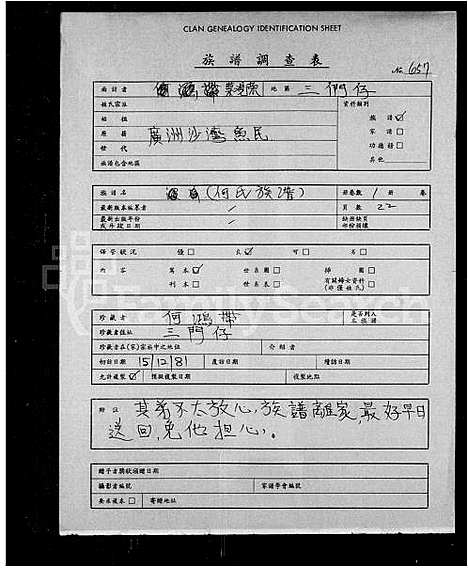 CLAN GENEALOGY IDENTIFICATION SHEET
族譜調查表
No 657
地區 三門仔
姓氏宗族
資料類別
始祖
族譜 ☑
原籍 廣州沙灣魚民
家譜 □
世代
功德錄 □
族譜包含地區
其他
族譜名 (何氏族譜)
冊卷數 1 冊 卷
最新版本編纂者
頁數 22
最新出版年份
或月設日期
缺冊缺頁
部份損壞
保管狀況 優 □ 良 ☑ 可 □ 劣 □
內容 寫本 ☑ 世系圖 □ 插圖 □
刊本 □ 世系表 □ 有關婦女資料
(非僅姓氏) □
珍藏者 何鴻帶
是否列入
珍藏者住址 三門仔
珍藏者在(家)宗族中之地位
介紹者
初訪日期 15/12/81 覆訪日期 續訪日期
允許複製 ☑ 預擬複製日期 複製地點
附註 其弟不太放心,族譜離家,最好早日
送回,免他担心。
贈予者獎狀頒贈日期
攝影者編號 家譜學會編號
要求複本 □ 寄贈地址
FamilySearch